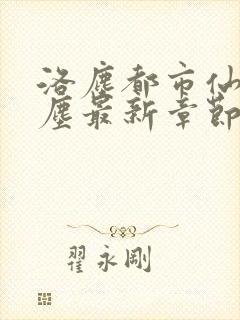 洛塵都市仙
塵最新章節
翟永剛